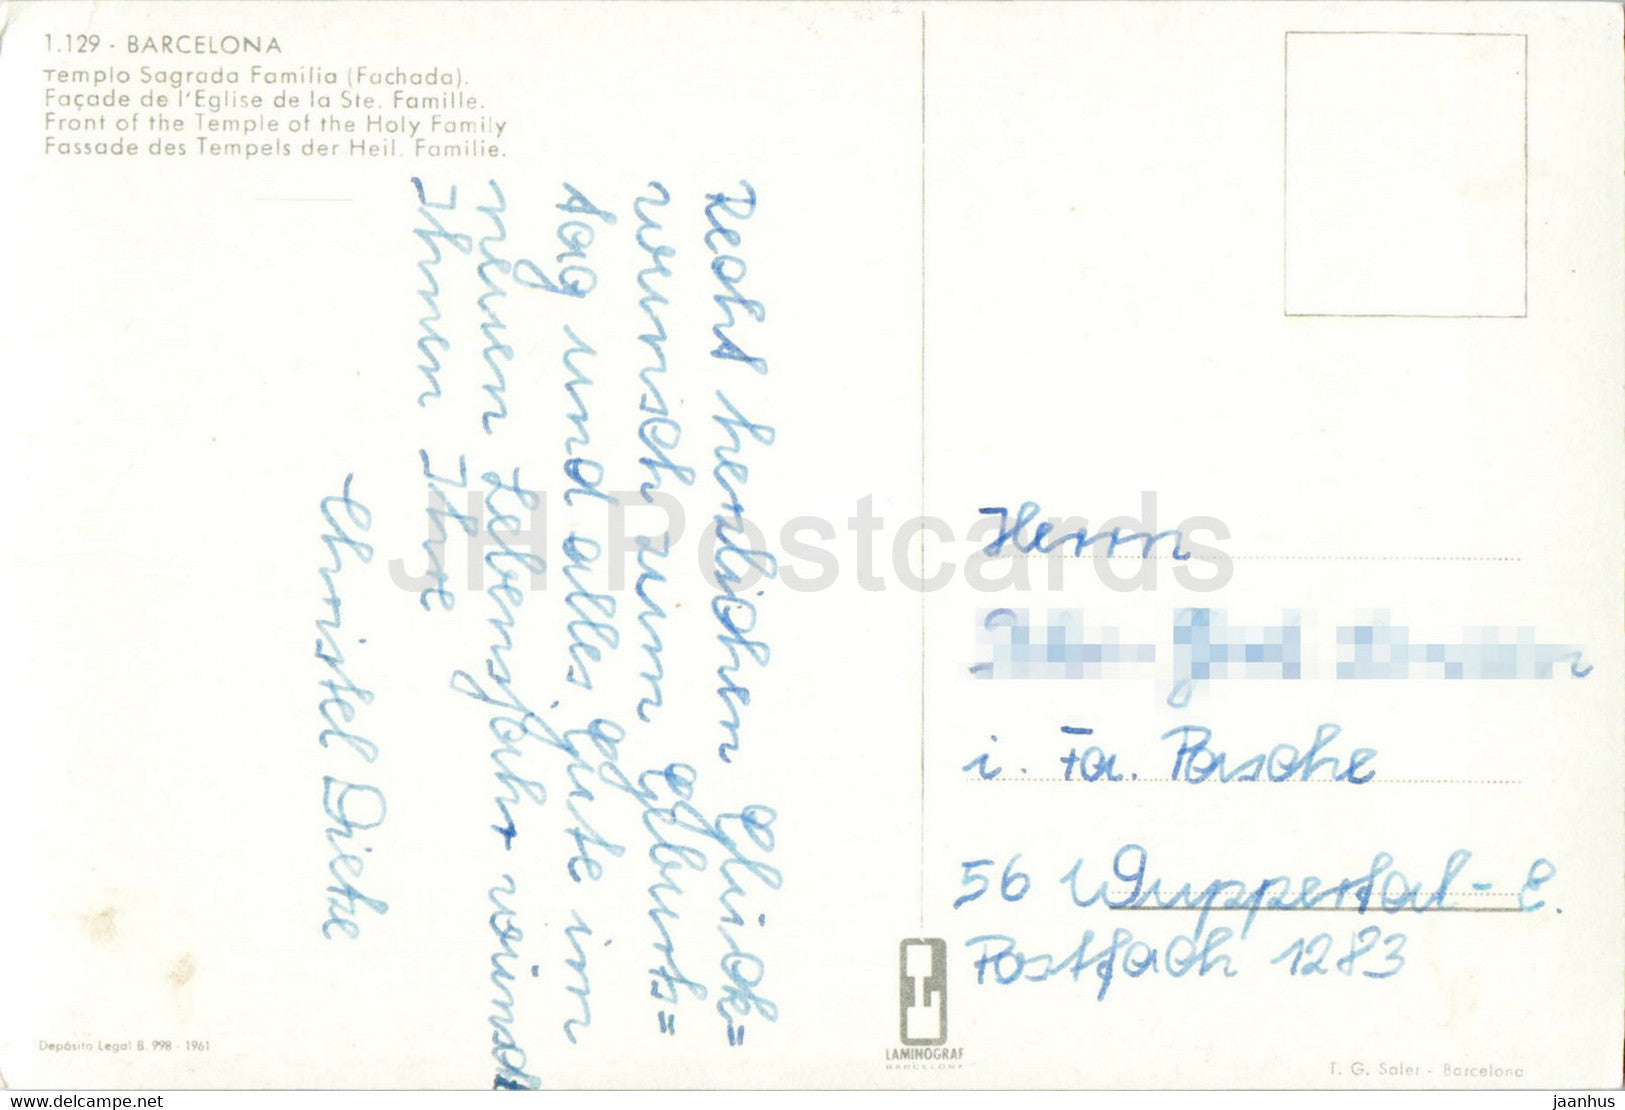 1.129 - BARCELONA
Templo Sagrada Familia (Fachada).
Façade de l'Eglise de la Ste. Famille.
Front of the Temple of the Holy Family
Fassade des Tempels der Heil. Familie.
Recht herzlichen Glück=
wunsch zum Geburts=
tag und alles Gute im
neuen Lebensjahr wünscht
Ihnen Ihre
Christel Dietze
Herrn
i. Fa. Pasche
56 Wuppertal-E.
Postfach 1283
Depósito Legal B. 998 - 1961
LAMINOGRAF
BARCELONA
T. G. Soler - Barcelona
JH Postcards
delcampe.net
jaanhus